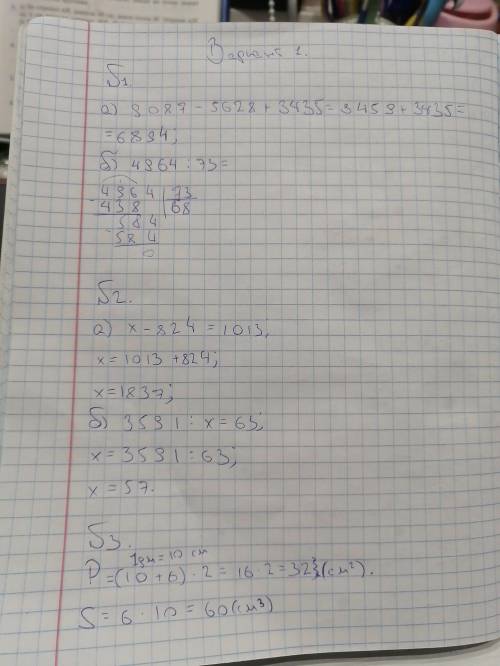 Вариант 1.
Б1.
а) 9087 - 5628 + 3435 = 3459 + 3435 =
= 6894;
б) 4964 : 73 =
4964 | 73
- 438 | 68
584
- 584
0
Б2.
а) x - 824 = 1013;
x = 1013 + 824;
x = 1837;
б) 3591 : x = 63;
x = 3591 : 63;
x = 57.
Б3.
1дм = 10 см
P = (10 + 6) · 2 = 16 · 2 = 32 (см²).
S = 6 · 10 = 60 (см³)